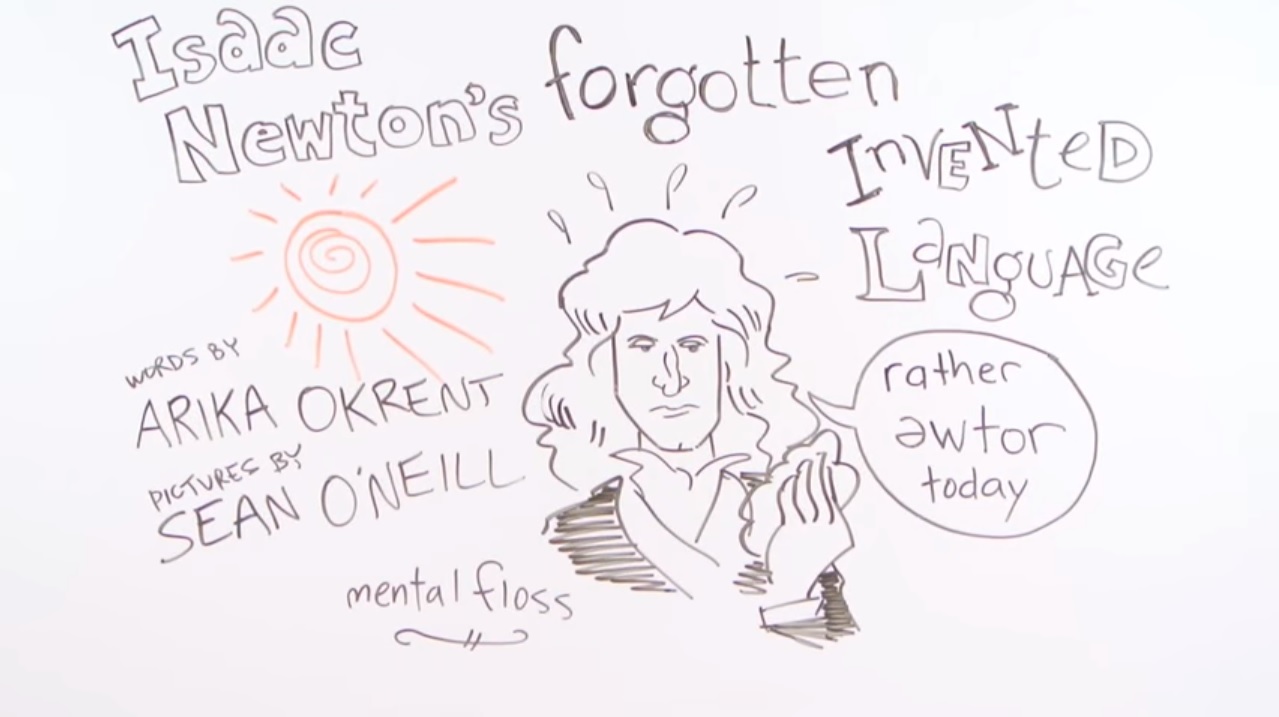 Isaac
Newton's forgotten
INVENteD
LaNguAGe
WORDS BY
ARIKA OKRENT
PICTURES BY
SEAN O'NEILL
mental floss
rather
awtor
today